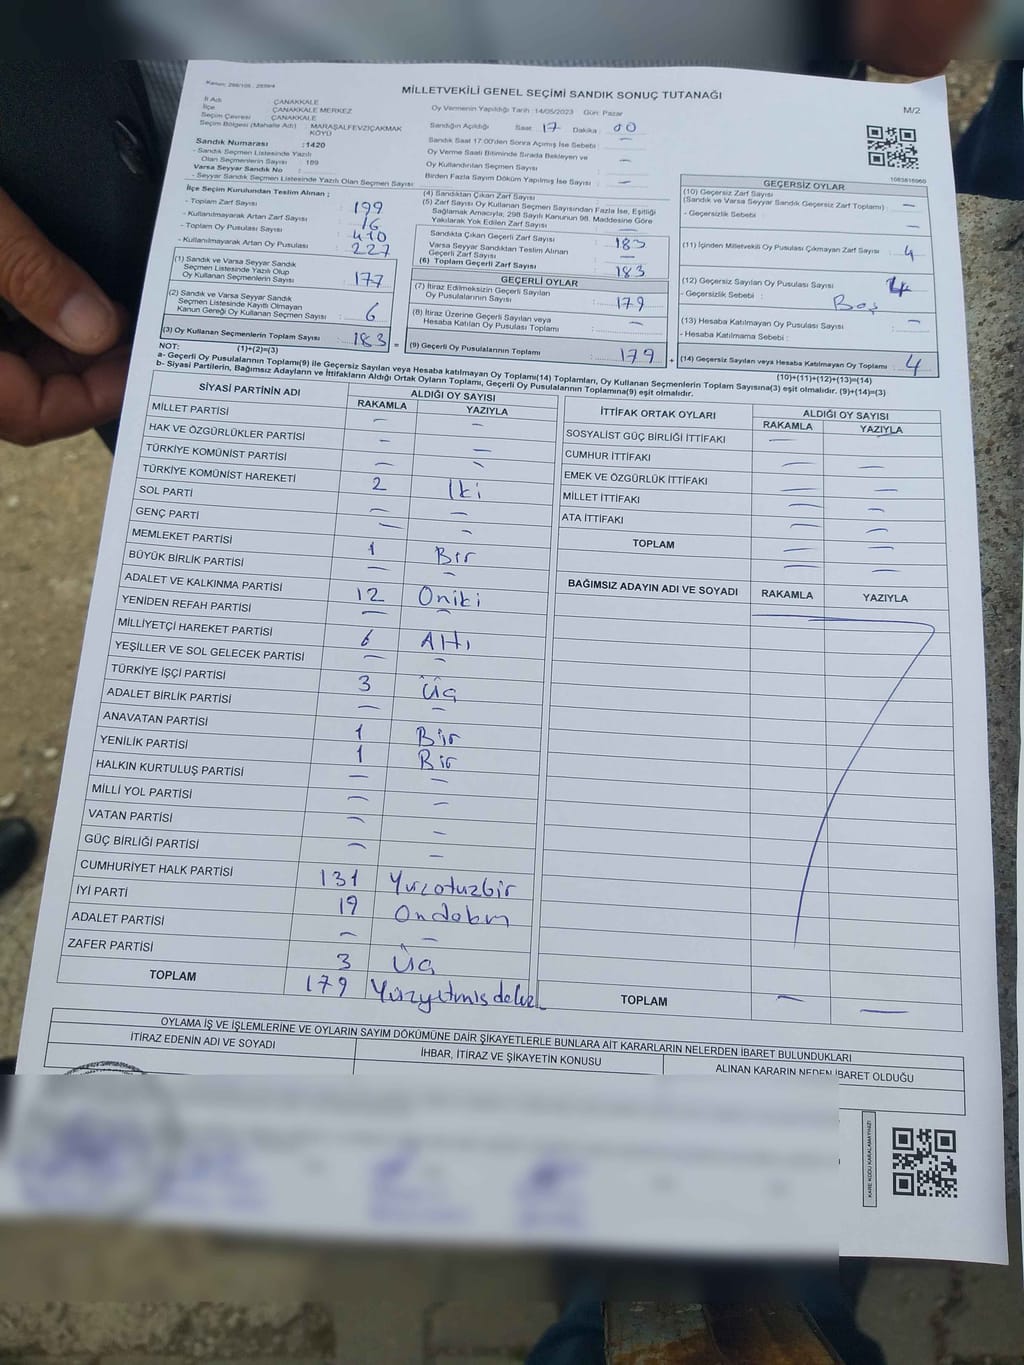 Kanun: 298/105 - 2839/4
MİLLETVEKİLİ GENEL SEÇİMİ SANDIK SONUÇ TUTANAĞI
M/2
İl Adı : ÇANAKKALE
İlçe : ÇANAKKALE MERKEZ
Seçim Çevresi : ÇANAKKALE
Seçim Bölgesi (Mahalle Adı) : MARAŞALFEVZİÇAKMAK KÖYÜ
Sandık Numarası :1420
- Sandık Seçmen Listesinde Yazılı
Olan Seçmenlerin Sayısı : 189
Varsa Seyyar Sandık No :
- Seyyar Sandık Seçmen Listesinde Yazılı Olan Seçmen Sayısı :
Oy Vermenin Yapıldığı Tarih : 14/05/2023 Gün: Pazar
Sandığın Açıldığı Saat : 17 Dakika : 00
Sandık Saat 17:00'den Sonra Açımış İse Sebebi : —
Oy Verme Saati Bitiminde Sırada Bekleyen ve
Oy Kullandırılan Seçmen Sayısı : —
Birden Fazla Sayım Döküm Yapılmış İse Sayısı : —
1083815960
İlçe Seçim Kurulundan Teslim Alınan ;
- Toplam Zarf Sayısı : 199
- Kullanılmayarak Artan Zarf Sayısı : 16
- Toplam Oy Pusulası Sayısı : 410
- Kullanılmayarak Artan Oy Pusulası : 227
(1) Sandık ve Varsa Seyyar Sandık
Seçmen Listesinde Yazılı Olup
Oy Kullanan Seçmenlerin Sayısı : 177
(2) Sandık ve Varsa Seyyar Sandık
Seçmen Listesinde Kayıtlı Olmayan
Kanun Gereği Oy Kullanan Seçmen Sayısı : 6
(3) Oy Kullanan Seçmenlerin Toplam Sayısı : 183 =
(4) Sandıktan Çıkan Zarf Sayısı :
(5) Zarf Sayısı Oy Kullanan Seçmen Sayısından Fazla İse, Eşitliği
Sağlamak Amacıyla; 298 Sayılı Kanunun 98. Maddesine Göre
Yakılarak Yok Edilen Zarf Sayısı : —
Sandıkta Çıkan Geçerli Zarf Sayısı : 183
Varsa Seyyar Sandıktan Teslim Alınan
Geçerli Zarf Sayısı : —
(6) Toplam Geçerli Zarf Sayısı : 183
GEÇERLİ OYLAR
(7) İtiraz Edilmeksizin Geçerli Sayılan
Oy Pusulalarının Sayısı : 179
(8) İtiraz Üzerine Geçerli Sayılan veya
Hesaba Katılan Oy Pusulası Toplamı : —
(9) Geçerli Oy Pusulalarının Toplamı : 179 +
GEÇERSİZ OYLAR
(10) Geçersiz Zarf Sayısı
(Sandık ve Varsa Seyyar Sandık Geçersiz Zarf Toplamı) : —
- Geçersizlik Sebebi : —
(11) İçinden Milletvekili Oy Pusulası Çıkmayan Zarf Sayısı : 4
(12) Geçersiz Sayılan Oy Pusulası Sayısı :
- Geçersizlik Sebebi : Boş
(13) Hesaba Katılmayan Oy Pusulası Sayısı : —
- Hesaba Katılmama Sebebi :
(14) Geçersiz Sayılan veya Hesaba Katılmayan Oy Toplamı : 4
NOT: (1)+(2)=(3)
(10)+(11)+(12)+(13)=(14)
a- Geçerli Oy Pusulalarının Toplamı(9) ile Geçersiz Sayılan veya Hesaba Katılmayan Oy Pusulası Toplamı(14) Toplamları, Oy Kullanan Seçmenlerin Toplam Sayısına(3) eşit olmalıdır. (9)+(14)=(3)
b- Siyasi Partilerin, Bağımsız Adayların ve İttifakların Aldığı Ortak Oyların Toplamı, Geçerli Oy Pusulalarının Toplamına(9) eşit olmalıdır.
SİYASİ PARTİNİN ADI ALDIĞI OY SAYISI
RAKAMLA YAZIYLA
MİLLET PARTİSİ — —
HAK VE ÖZGÜRLÜKLER PARTİSİ —
TÜRKİYE KOMÜNİST PARTİSİ — —
TÜRKİYE KOMÜNİST HAREKETİ 2 İki
SOL PARTİ — —
GENÇ PARTİ — —
MEMLEKET PARTİSİ 1 Bir
BÜYÜK BİRLİK PARTİSİ — —
ADALET VE KALKINMA PARTİSİ 12 Oniki
YENİDEN REFAH PARTİSİ — —
MİLLİYETÇİ HAREKET PARTİSİ 6 Altı
YEŞİLLER VE SOL GELECEK PARTİSİ — —
TÜRKİYE İŞÇİ PARTİSİ 3 Üç
ADALET BİRLİK PARTİSİ — —
ANAVATAN PARTİSİ 1 Bir
YENİLİK PARTİSİ 1 Bir
HALKIN KURTULUŞ PARTİSİ — —
MİLLİ YOL PARTİSİ — —
VATAN PARTİSİ — —
GÜÇ BİRLİĞİ PARTİSİ — —
CUMHURİYET HALK PARTİSİ 131 Yüzotuzbir
İYİ PARTİ 19 Ondokuz
ADALET PARTİSİ — —
ZAFER PARTİSİ 3 Üç
TOPLAM 179 Yüzyetmişdokuz
İTTİFAK ORTAK OYLARI ALDIĞI OY SAYISI
RAKAMLA YAZIYLA
SOSYALİST GÜÇ BİRLİĞİ İTTİFAKI — —
CUMHUR İTTİFAKI — —
EMEK VE ÖZGÜRLÜK İTTİFAKI — —
MİLLET İTTİFAKI — —
ATA İTTİFAKI — —
TOPLAM — —
BAĞIMSIZ ADAYIN ADI VE SOYADI RAKAMLA YAZIYLA
TOPLAM — —
OYLAMA İŞ VE İŞLEMLERİNE VE OYLARIN SAYIM DÖKÜMÜNE DAİR ŞİKAYETLERLE BUNLARA AİT KARARLARIN NELERDEN İBARET BULUNDUKLARI
İTİRAZ EDENİN ADI VE SOYADI
İHBAR, İTİRAZ VE ŞİKAYETİN KONUSU
ALINAN KARARIN NEDEN İBARET OLDUĞU
KARE KODU KARALAMAYINIZ!